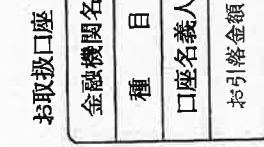 お取扱口座
金融機関名
種目
口座名義人
お引落金額